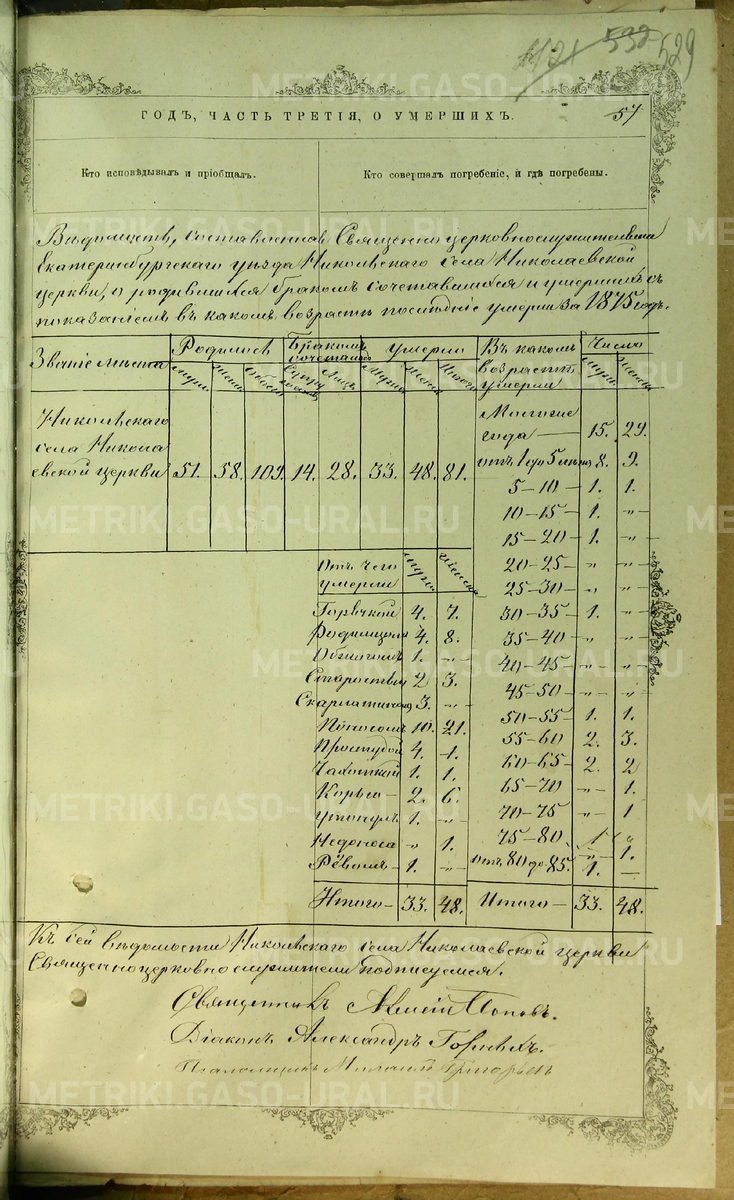 1121 532 529
ГОДЪ, ЧАСТЬ ТРЕТІЯ, О УМЕРШИХЪ.
57
Кто исповѣдывалъ и пріобщалъ.
Кто совершалъ погребеніе, и гдѣ погребены.
Вѣдомость, составленная Священно церковнослужителями
Екатеринбургскаго уѣзда Никольскаго села Николаевской
церкви, о родившихся бракомъ сочетавшихся и умершихъ съ
показаніемъ въ какомъ возрастѣ послѣдніе умерли за 1875 годъ.
Званіе мѣста Родилось Бракомъ сочеталось Умерло Въ какомъ возрастѣ умерли Число
муж. женс. обоего супру жествъ лицъ мужа женск обоего мужа женска
Никольскаго
села Никола
евской церкви 51. 58. 109. 14. 28. 33. 48. 81.
Многіе
года — 15. 29.
отъ 1 до 5 лѣтъ 8. 9.
5 – 10 – 1. 1.
10 – 15 – 1. „
15 – 20 – 1. „
20 – 25 – „ „
25 – 30 – „ „
30 – 35 – 1. „
35 – 40 – „ „
40 – 45 – „ „
45 – 50 – „ „
50 – 55 – 1. 1.
55 – 60 2. 3.
60 – 65 – 2. 2
65 – 70 „ 1.
70 – 75 „ 1
75 – 80. 1 „
„ 1.
отъ 80 до 85. 1. —
Итого — 33. 48.
Отъ чего
умерли мужа женска
Горячкой 4. 7.
Родимцемъ 4. 8.
1. „
Старостью 2 3.
Скарлатиною 3. „
Поносомъ 10. 21.
Простудой 4. 1.
Чахоткой 1. 1.
Корью — 2. 6.
Утонулъ 1. „
Недоноса „ 1.
Рёвомъ — 1. „
Итого — 33. 48.
Къ сей вѣдомости Никольскаго села Николаевской церкви
Священноцерковнослужители подписуемся.
Священникъ Алексій Поповъ.
Діаконъ Александръ Горныхъ.
Псаломщикъ Григорьевъ
METRIKI.GASO-URAL.RU